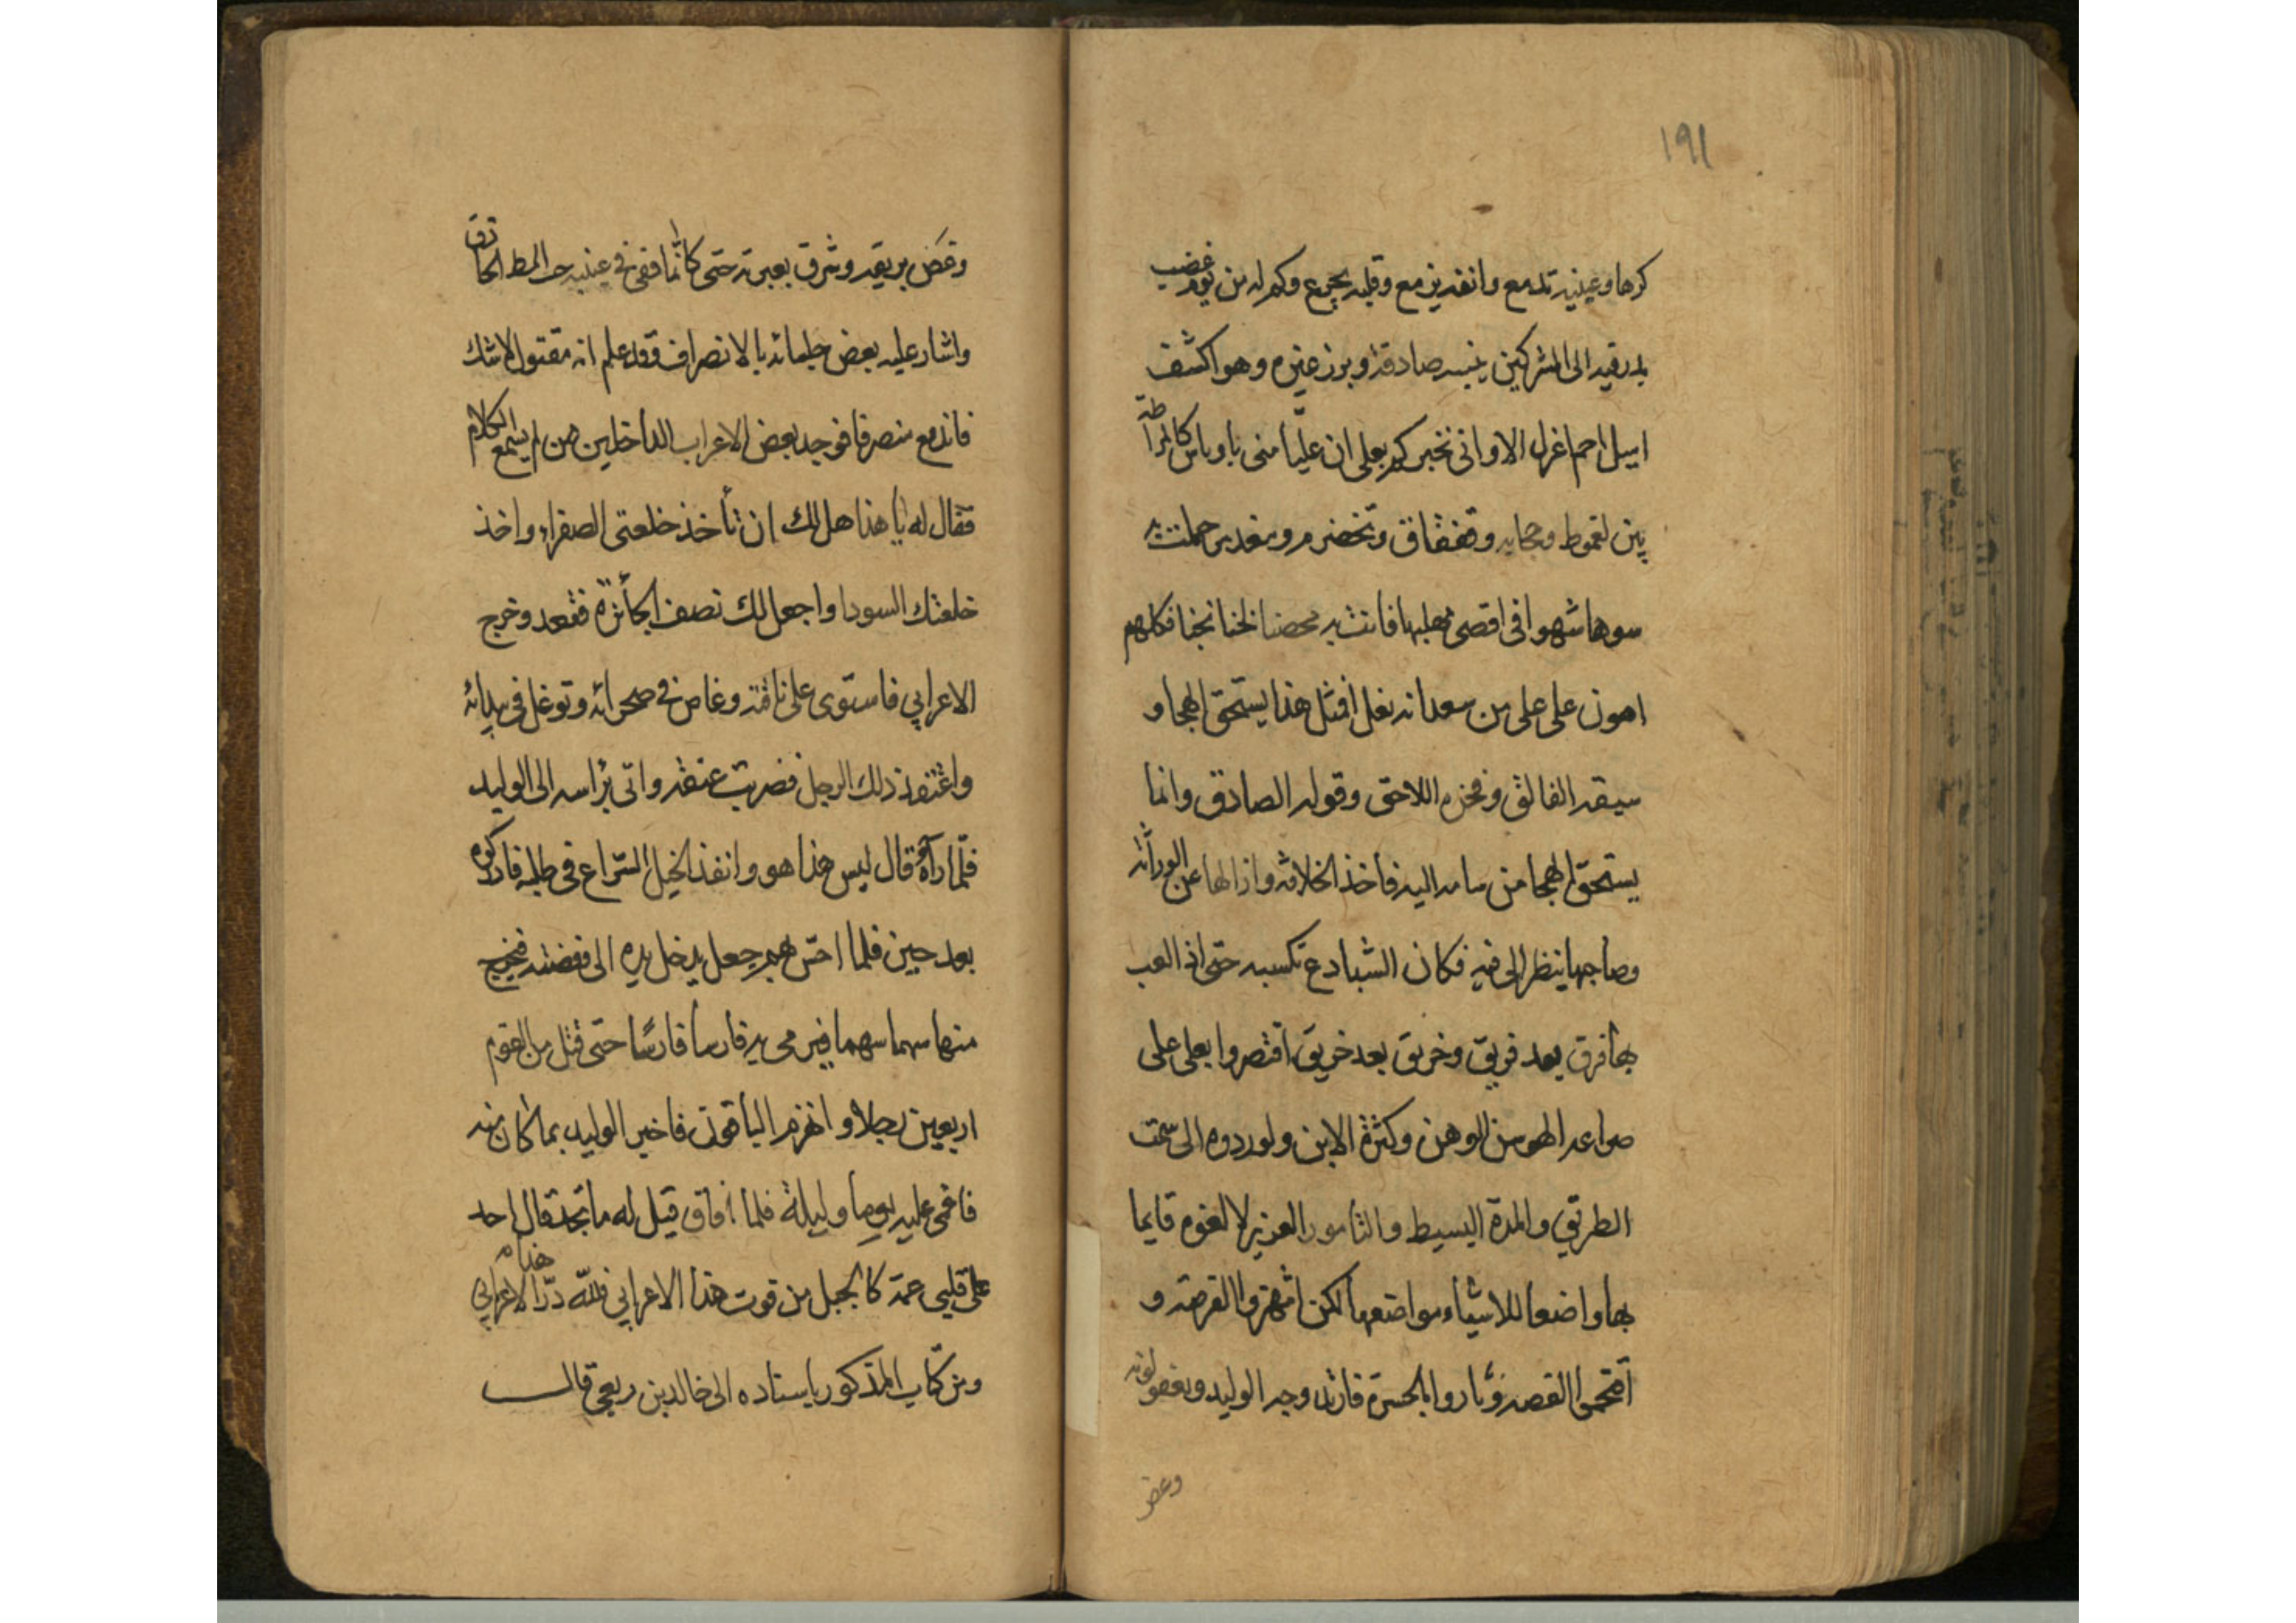 ١٩١
كرها وعينيه تدمع وانفه يزمع وقلبه يجزع وكم له من يوم عصيب
برز فيه الى المشركين بنيه صادقة وبرز غيره وهو اكشف
اميل اجم اعزل الا وانى مخبركم بعلى ان عليا منى باوباش كالمراطة
بين لغموط وحجابه وفقفاق ومخضرم ومغذمر حملت به
سوها شهوا فى اقصى مهلبها فاتت به محضا لخنا نجنا فكلهم
اهون على على من سعدانه نعل افمثل هذا يستحق الهجا و
سيفه الفالق وفخره اللاحق وقوله الصادق وانما
يستحق الهجا من سامه اليه فاخذ الخلافة وازالها عن الوراثة
وصاحبها ينظر الى فيه فكان الشبادع تكسبه حتى اذا لعب
بها فرق بعد فريق وخريق بعد خريق اقتصروا بعلى على
صراعه الهو من الوهن وكثرة الابن ولو ردوه الى سمت
الطريق والمدة البسيط والتامور العزيز لالفوه قايما
بها واضعا للاشياء مواضعها لكن انتهزوا الفرصة و
اقتحموا القصة وباروا بالحسرة فاربد وجه الوليد وتغير لونه
وغص
وغض بريقه وشرق بعبرته حتى كانما فقئ فى عينيه حب المط الحاذق
واشار عليه بعض جلسائه بالانصراف وقد علم انه مقتول لا شك
فاندمع منصرفا فوجد بعض الاعراب الداخلين ممن لم يسمع الكلام
فقال له يا هذا هل لك ان تأخذ خلعتى الصفراء واخذ
خلعتك السودا واجعل لك نصف الجائزة ففعد وخرج
الاعرابي فاستوى على ناقته وغاص فى صحرائه وتوغل فى بيدائه
واعتفد ذلك الرجل فضربت عنقه واتى براسه الى الوليد
فلما رآه قال ليس هذا هو وانفذ الخيل السراع فى طلبه فادركوه
بعد حين فلما احس بهم جعل يدخل يده الى وفضته فيخرج
منها سهما سهما فيرمى به فارسا فارسا حتى قتل من القوم
اربعين رجلا وانهزم الباقون فاخبر الوليد بما كان منه
فاغمى عليه يوما وليلة فلما افاق قيل له ما تجد قال اجد
على قلبى غمة كالجبل من فوت هذا الاعرابي فلله دره الاعرابي
هذا م
ومن كتاب المذكور باسناده الى خالد بن ربعى قال